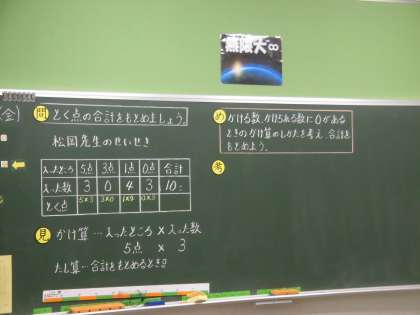 無限大∞
(金)
問 とく点の合計をもとめましょう。
松岡先生のせいせき
入ったところ 5点 3点 1点 0点 合計
入った数 3 0 4 3 10
とく点 5×3 3×0 1×4 0×3
見 かけ算…入ったところ × 入った数
5点 × 3
たし算…合計をもとめるとき
め かける数、かけられる数に0がある
ときのかけ算のしかたを考え、合計を
もとめよう。
考